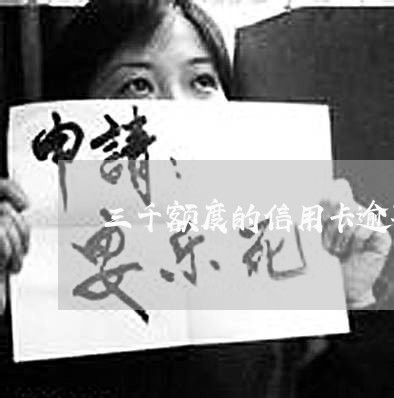 申請：
三千额度的信用卡逾
要乐死